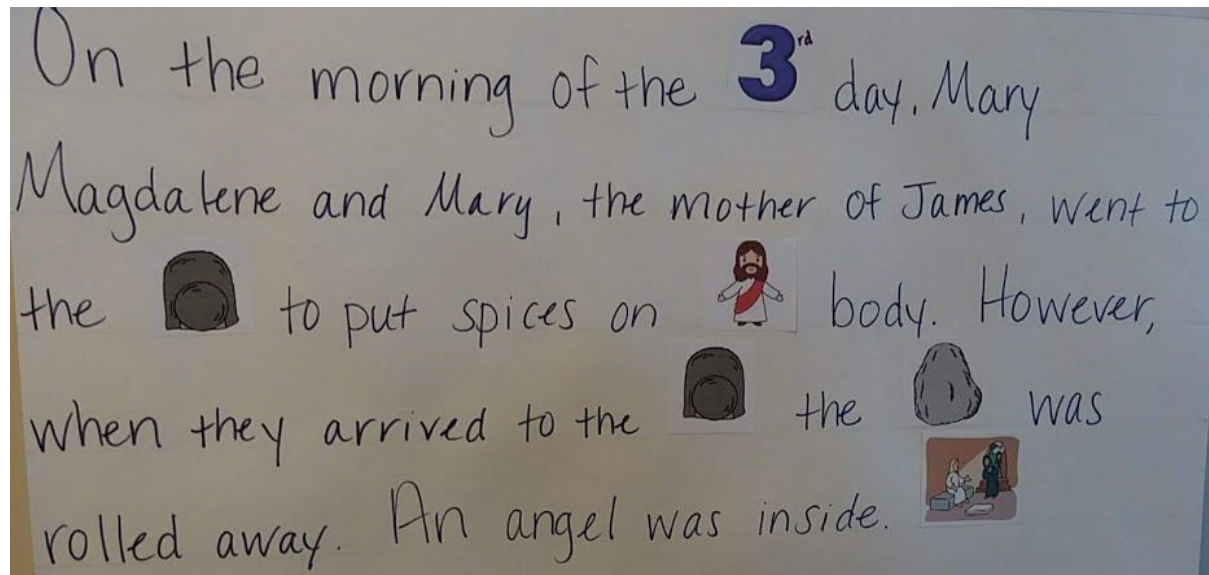 On the morning of the 3rd day, Mary
Magdalene and Mary, the mother of James, went to
the to put spices on body. However,
when they arrived to the the was
rolled away. An angel was inside.